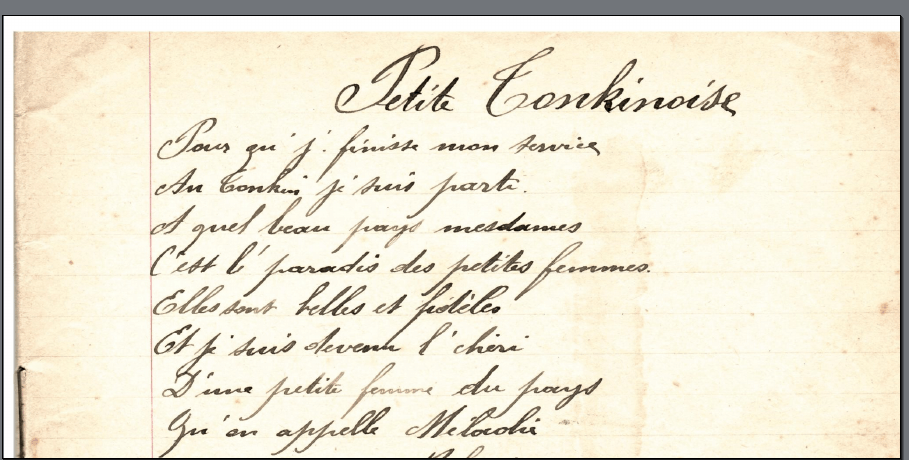 Petite Tonkinoise
Pour qu' j' finisse mon service
Au Tonkin j' suis parti.
A quel beau pays mesdames
C'est l' paradis des petites femmes.
Elles sont belles et fidèles
Et j' suis devenu l' chéri
D'une petite femme du pays
Qu'on appelle